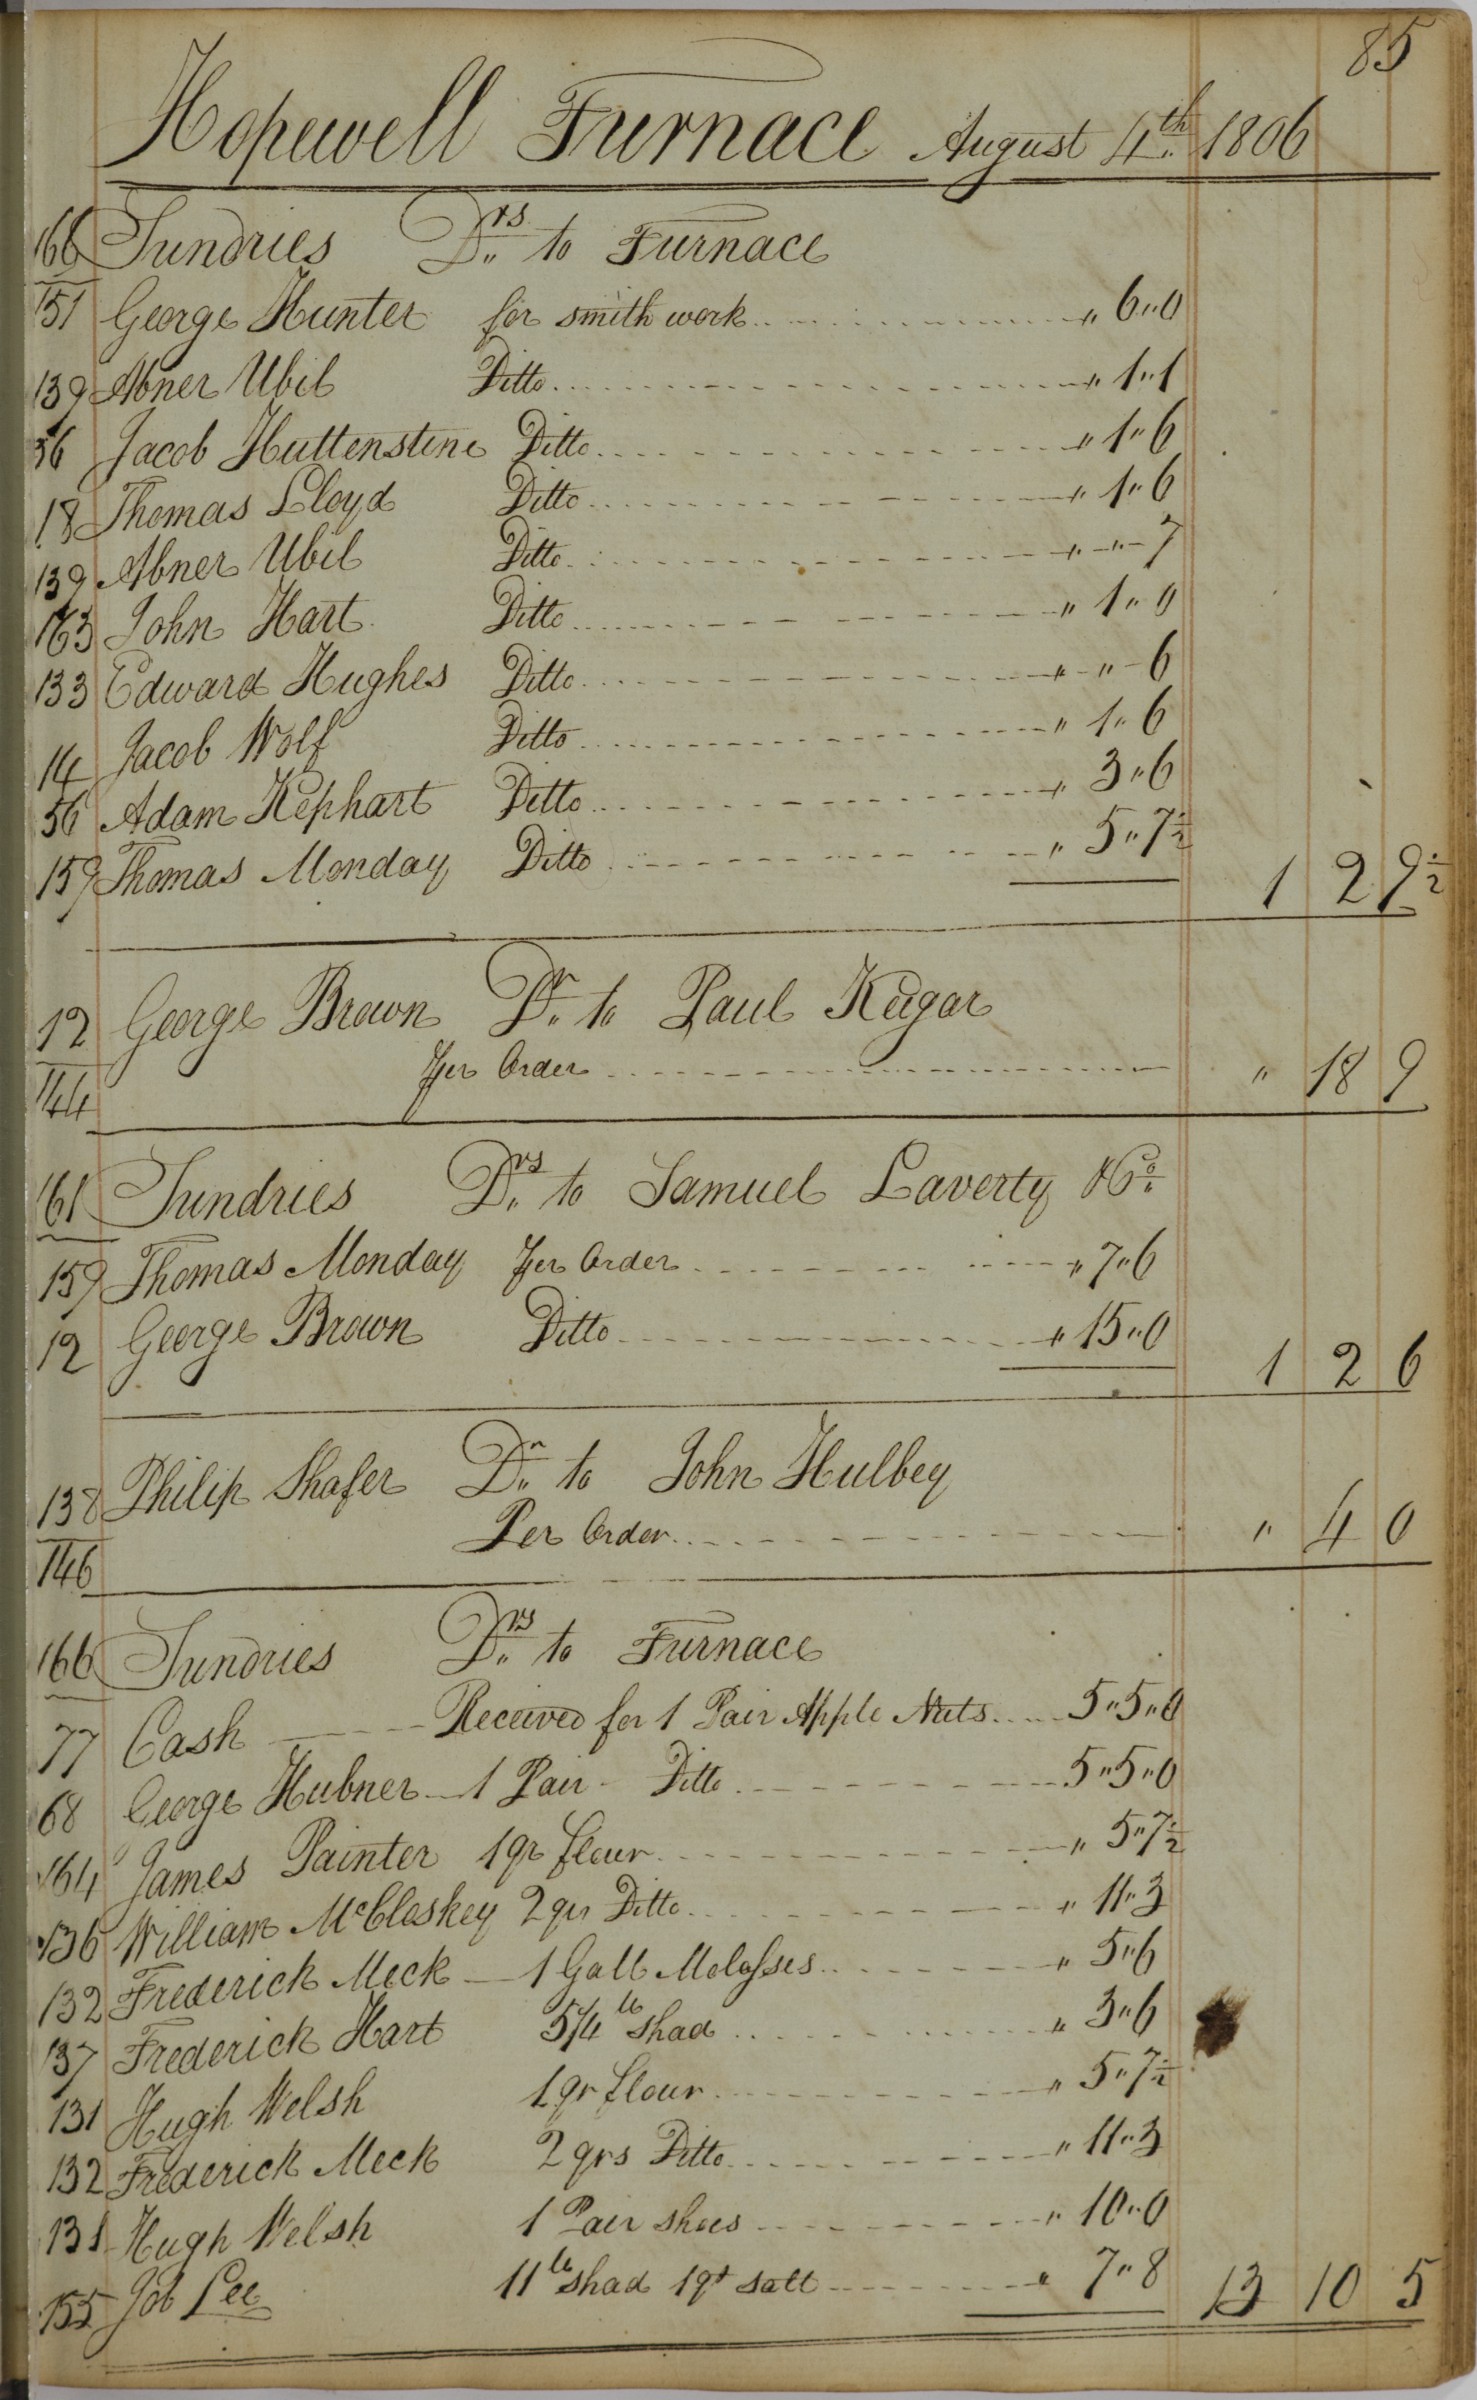 85
Hopewell Furnace August 4th 1806
166 Sundries Drs to Furnace
151 George Hunter for smith work " 6"0
139 Abner Ubil Ditto " 1"1
36 Jacob Huttenstine Ditto " 1"6
18 Thomas Lloyd Ditto " 1"6
139 Abner Ubil Ditto " " 7
163 John Hart Ditto " 1"0
133 Edward Hughes Ditto " " 6
14 Jacob Wolf Ditto " 1"6
56 Adam Kephart Ditto " 3"6
159 Thomas Monday Ditto " 5"7½
1 2 9½
12 George Brown Dr to Paul Keigar
144 Per Order " 18 9
161 Sundries Drs to Samuel Laverty &Co
159 Thomas Monday Per Order " 7"6
12 George Brown Ditto " 15"0
1 2 6
138 Philip Shafer Dr to John Hulbey
146 Per Order " 4 0
166 Sundries Drs to Furnace
77 Cash Received for 1 Pair Apple Nuts 5"5"0
68 George Hubner 1 Pair Ditto 5"5"0
164 James Painter 1 qr flour " 5"7½
136 William McCloskey 2 qrs Ditto " 11"3
132 Frederick Meck 1 Gall Molasses " 5"6
137 Frederick Hart 5¼ lb shad " 3"6
131 Hugh Welsh 1 qr flour " 5"7½
132 Frederick Meck 2 qrs Ditto " 11"3
131 Hugh Welsh 1 Pair shoes " 10"0
155 Job Lee 11 lb shad 1 qt salt " 7"8 13 10 5